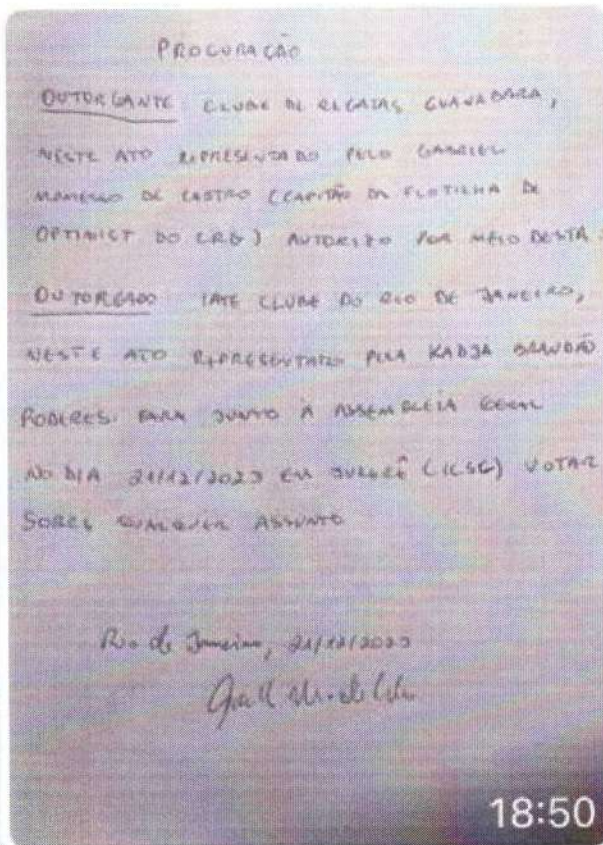 PROCURAÇÃO
OUTORGANTE: CLUBE DE REGATAS GUANABARA,
NESTE ATO REPRESENTADO PELO GABRIEL
DE CASTRO (CAPITÃO DA FLOTILHA DE
OPTIMIST DO CRG) AUTORIZO POR MEIO DESTA:
OUTORGADO IATE CLUBE DO RIO DE JANEIRO,
NESTE ATO REPRESENTADO PELA KADJA BRANDÃO
PODERES: PARA JUNTO À ASSEMBLEIA GERAL
NO DIA 21/12/2023 EM JURERÊ (ICSC) VOTAR
SOBRE QUALQUER ASSUNTO
Rio de Janeiro, 21/12/2023
18:50